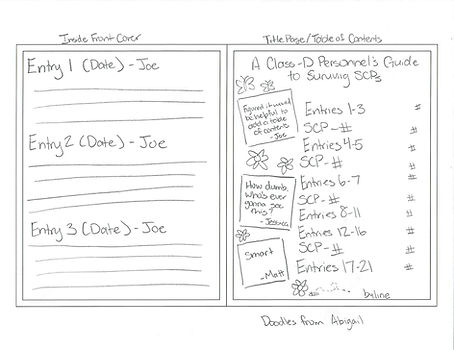 Inside Front Cover
Entry 1 (Date) - Joe
Entry 2 (Date) - Joe
Entry 3 (Date) - Joe
Title Page/Table of Contents
A Class-D Personnel's Guide
to Surviving SCPs
Figured it would
be helpful to
add a table
of contents
-Joe
How dumb.
Who's ever
gonna see
this?
-Jessica
Smart
-Matt
Entries 1-3 #
SCP-# #
Entries 4-5 #
SCP-# #
Entries 6-7 #
SCP-# #
Entries 8-11 #
Entries 12-16 #
SCP-# #
Entries 17-21 #
byline
Doodles from Abigail